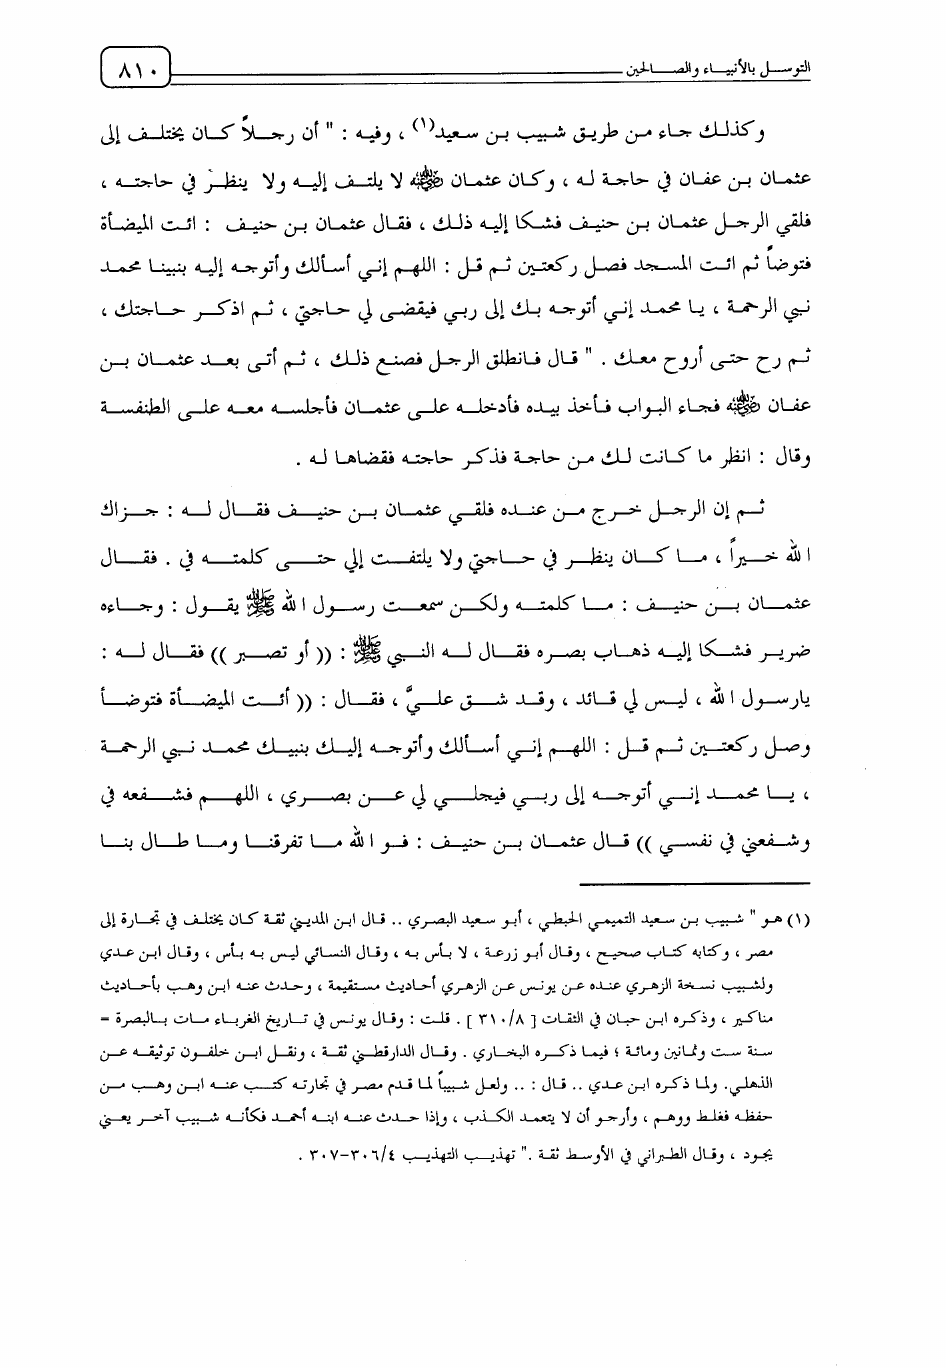 التوسل بالأنبياء والصالحين ٨١٠
وكذلك جاء من طريق شبيب بن سعيد(١) ، وفيه : " أن رجلاً كان يختلف إلى
عثمان بن عفان في حاجة له ، وكان عثمان ﷺ لا يلتف إليه ولا ينظر في حاجته ،
فلقي الرجل عثمان بن حنيف فشكا إليه ذلك ، فقال عثمان بن حنيف : ائت الميضأة
فتوضأ ثم ائت المسجد فصل ركعتين ثم قل : اللهم إني أسألك وأتوجه إليه بنبينا محمد
نبي الرحمة ، يا محمد إني أتوجه بك إلى ربي فيقضى لي حاجتي ، ثم اذكر حاجتك ،
ثم رح حتى أروح معك . " قال فانطلق الرجل فصنع ذلك ، ثم أتى بعد عثمان بن
عفان ﷺ فجاء البواب فأخذ بيده فأدخله على عثمان فأجلسه معه على الطنفسة
وقال : انظر ما كانت لك من حاجة فذكر حاجته فقضاها له .
ثم إن الرجل خرج من عنده فلقي عثمان بن حنيف فقال له : جزاك
الله خيراً ، ما كان ينظر في حاجتي ولا يلتفت إلي حتى كلمته في . فقال
عثمان بن حنيف : ما كلمته ولكن سمعت رسول الله ﷺ يقول : وجاءه
ضرير فشكا إليه ذهاب بصره فقال له النبي ﷺ : (( أو تصبر )) فقال له :
يارسول الله ، ليس لي قائد ، وقد شق عليَّ ، فقال : (( أئت الميضأة فتوضأ
وصل ركعتين ثم قل : اللهم إني أسألك وأتوجه إليك بنبيك محمد نبي الرحمة
، يا محمد إني أتوجه إلى ربي فيجلي لي عن بصري ، اللهم فشفعه في
وشفعني في نفسي )) قال عثمان بن حنيف : فو الله ما تفرقنا وما طال بنا
(١) هو " شبيب بن سعيد التميمي الحبطي ، أبو سعيد البصري .. قال ابن المديني ثقة كان يختلف في تجارة إلى
مصر ، وكتابه كتاب صحيح ، وقال أبو زرعة ، لا بأس به ، وقال النسائي ليس به بأس ، وقال ابن عدي
ولشبيب نسخة الزهري عنده عن يونس عن الزهري أحاديث مستقيمة ، وحدث عنه ابن وهب بأحاديث
مناكير ، وذكره ابن حبان في الثقات [ ٣١٠/٨ ] . قلت : وقال يونس في تاريخ الغرباء مات بالبصرة =
سنة ست وثمانين ومائة ؛ فيما ذكره البخاري . وقال الدارقطني ثقة ، ونقل ابن خلفون توثيقه عن
الذهلي. ولما ذكره ابن عدي .. قال : .. ولعل شبيباً لما قدم مصر في تجارته كتب عنه ابن وهب من
حفظه فغلط ووهم ، وأرجو أن لا يتعمد الكذب ، وإذا حدث عنه ابنه أحمد فكأنه شبيب آخر يعني
يجود ، وقال الطبراني في الأوسط ثقة ." تهذيب التهذيب ٣٠٦/٤-٣٠٧ .